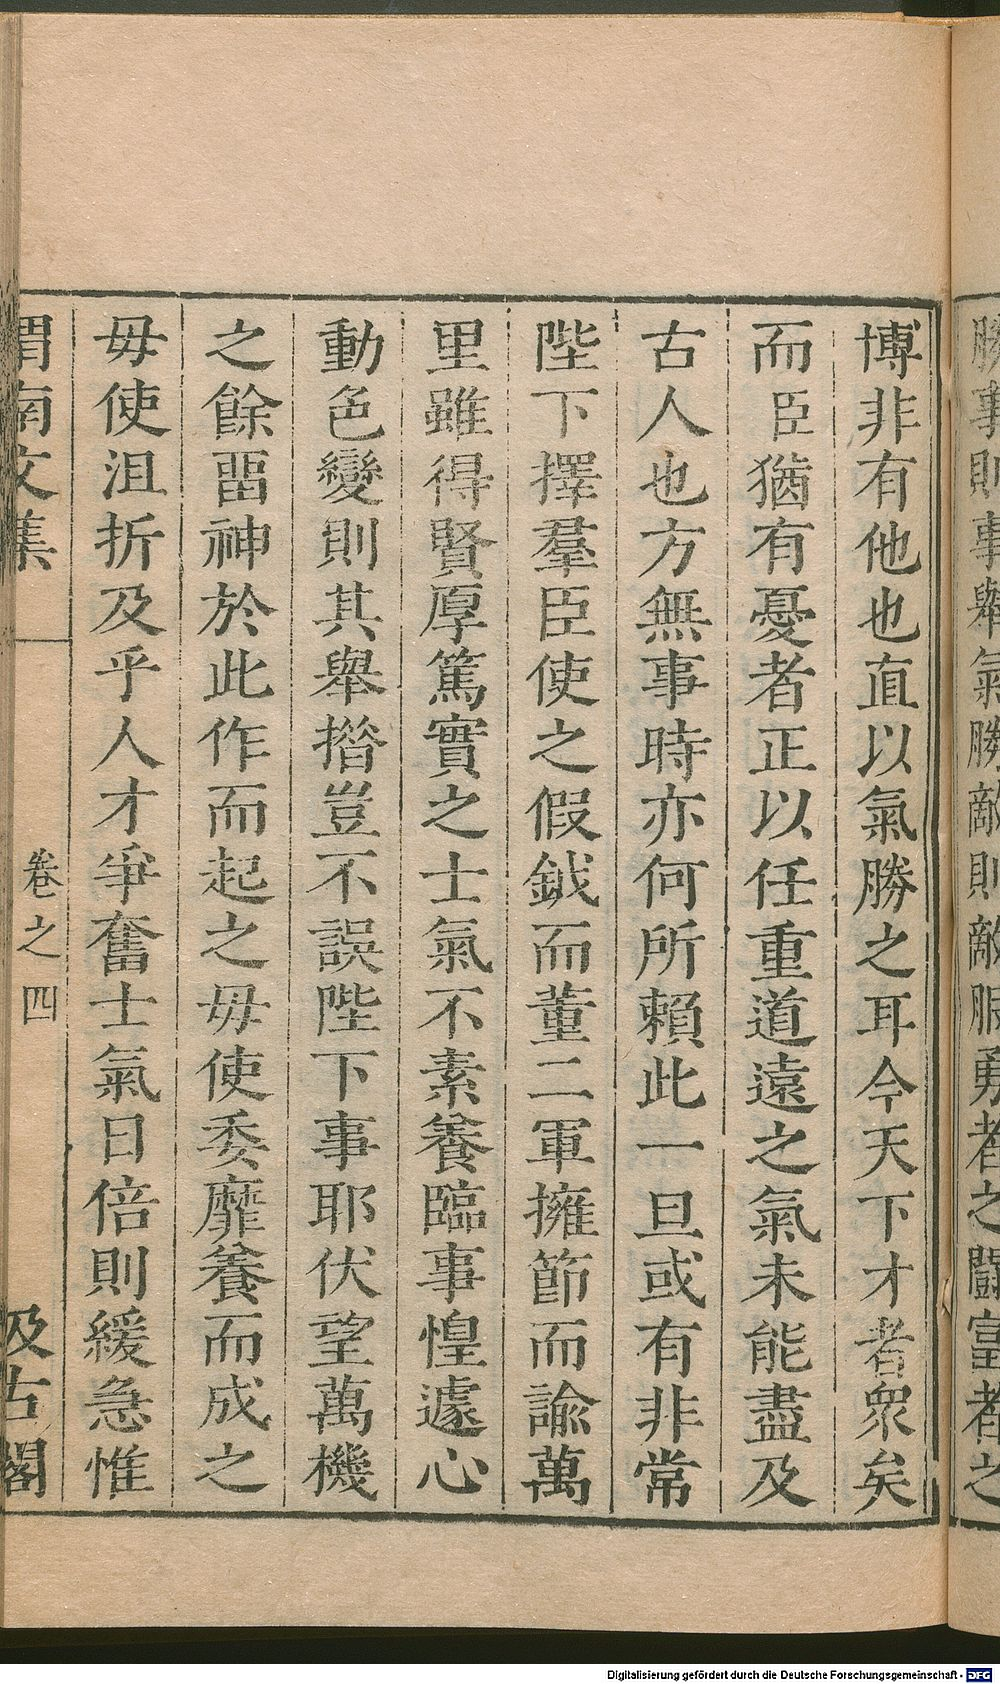 勝事則事舉氣勝敵則敵服勇者之鬭富者之
博非有他也直以氣勝之耳今天下才者衆矣
而臣猶有憂者正以任重道遠之氣未能盡及
古人也方無事時亦何所賴此一旦或有非常
陛下擇羣臣使之假鉞而董二軍擁節而諭萬
里雖得賢厚篤實之士氣不素養臨事惶遽心
動色變則其舉措豈不誤陛下事耶伏望萬機
之餘畱神於此作而起之毋使委靡養而成之
毋使沮折及乎人才爭奮士氣日倍則緩急惟
渭南文集 卷之四 汲古閣
Digitalisierung gefördert durch die Deutsche Forschungsgemeinschaft - DFG